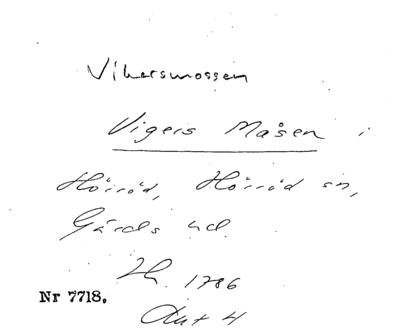 Vikersmossen
Vigers Måsen i
Hörröd, Hörröd sn,
Gärds hd.
1786
Nr 7718.
Akt 4